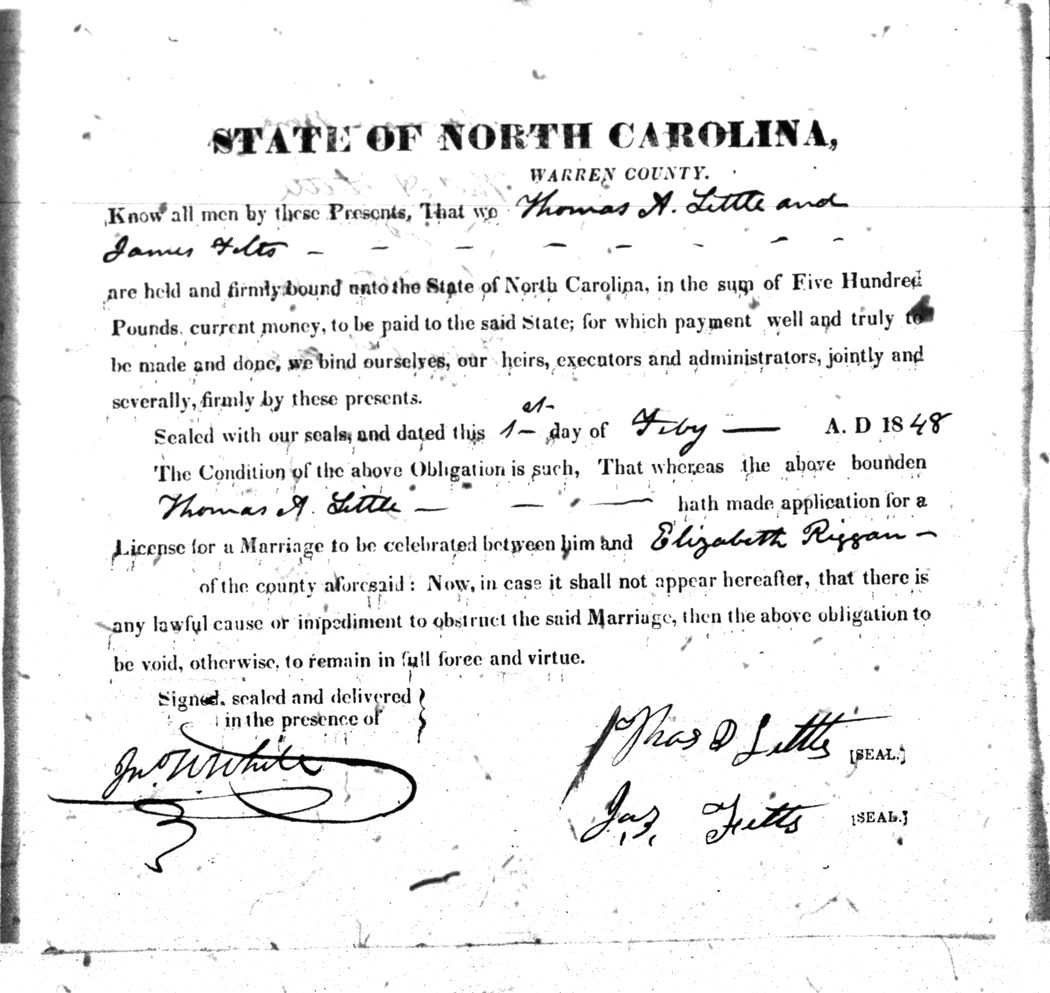 STATE OF NORTH CAROLINA,
WARREN COUNTY.
Know all men by these Presents, That we Thomas A. Little and
James Felts
are held and firmly bound unto the State of North Carolina, in the sum of Five Hundred
Pounds, current money, to be paid to the said State; for which payment well and truly to
be made and done, we bind ourselves, our heirs, executors and administrators, jointly and
severally, firmly by these presents.
Sealed with our seals, and dated this 1st day of Feby — A. D 1848
The Condition of the above Obligation is such, That whereas the above bounden
Thomas A. Little — — — hath made application for a
License for a Marriage to be celebrated between him and Elizabeth Riggan —
of the county aforesaid: Now, in case it shall not appear hereafter, that there is
any lawful cause or impediment to obstruct the said Marriage, then the above obligation to
be void, otherwise, to remain in full force and virtue.
Signed, sealed and delivered
in the presence of
Jno W White
Thos [SEAL.]
Jas [SEAL.]